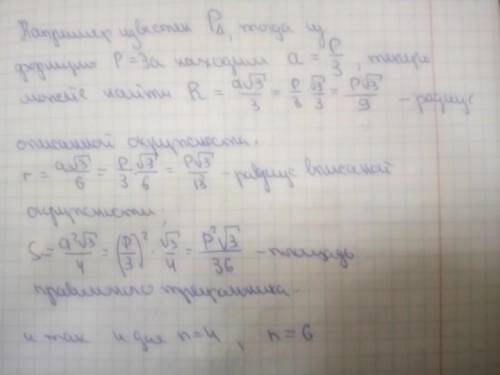 Например известен P△, тогда из
формулы P=3a находим a = P/3, теперь
можете найти R = a√3/3 = P/3 · √3/3 = P√3/9 – радиус
описанной окружности.
r = a√3/6 = P/3 · √3/6 = P√3/18 – радиус вписаной
окружности.
S = a²√3/4 = (P/3)² · √3/4 = P²√3/36 – площадь
правильного треугольника.
и так и для n=4, n=6